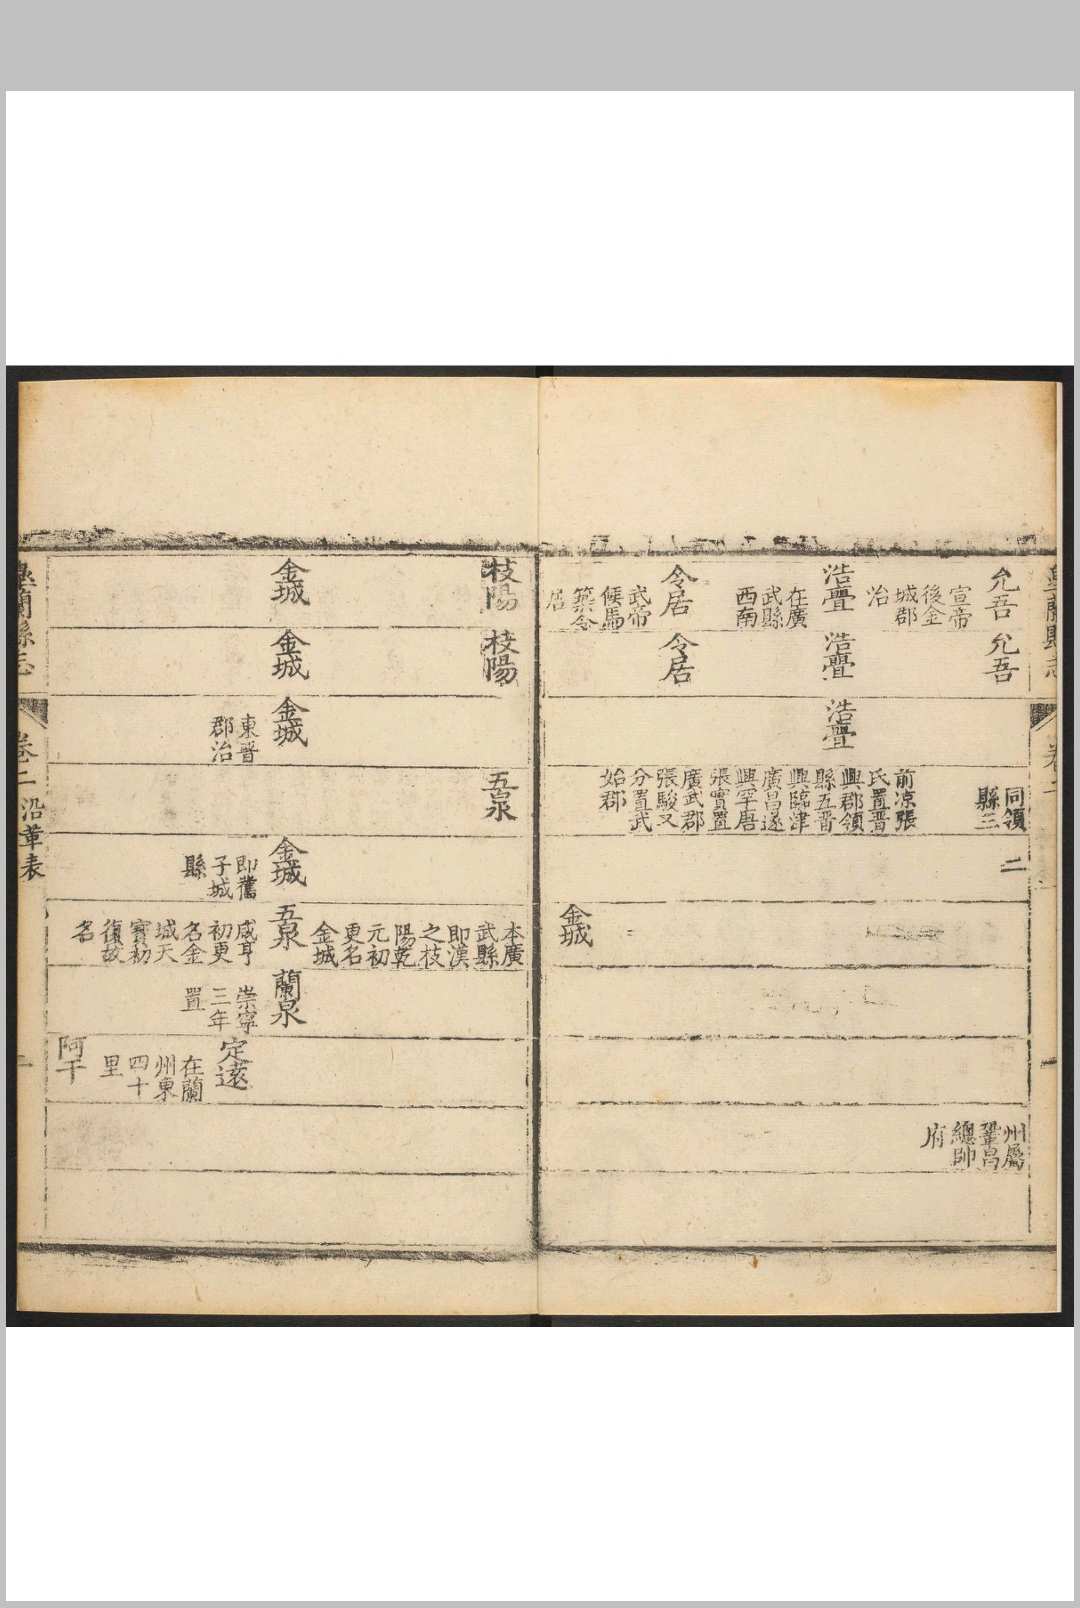 允吾
宣帝
後金
城郡
治
浩亹
在廣
武縣
西南
令居
武帝
候馬
築令
居
允吾
浩亹
令居
浩亹
同領
縣三
前凉張
氏置晉
興郡領
縣五晉
興臨津
廣昌遂
興罕唐
張實置
廣武郡
張駿又
分置武
始郡
二
金城
州屬
鞏昌
總帥
府
枝陽
金城
枝陽
金城
金城
東晉
郡治
五泉
金城
即舊
子城
縣
本廣
武縣
即漢
之枝
陽乾
元初
更名
金城
五泉
咸亨
初更
名金
城天
寳初
復故
名
蘭泉
崇寧
三年
置
定遠
在蘭
州東
四十
里
阿干
皋蘭縣志
卷二
沿革表